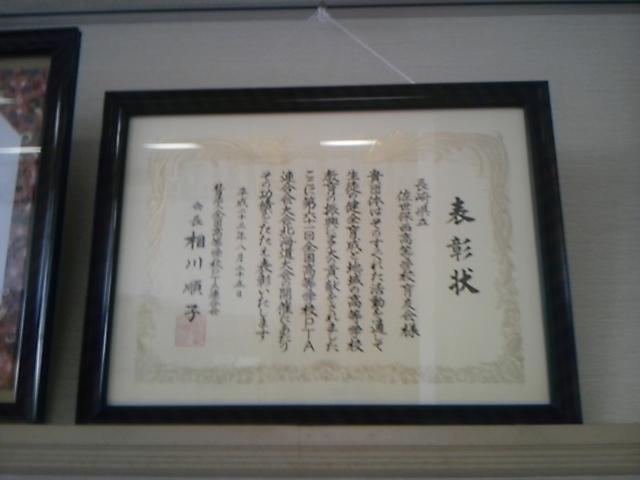 表彰状
長崎県立
佐世保西高等学校育友会様
貴団体はそのすぐれた活動を通して
生徒の健全育成と地域の高等学校
教育の振興に多大な貢献をされました
ここに第六一回全国高等学校PTA
連合会大会北海道大会の開催にあたり
その功績をたたえ表彰いたします
平成二十三年八月二十五日
社団法人全国高等学校PTA連合会
会長 相川順子